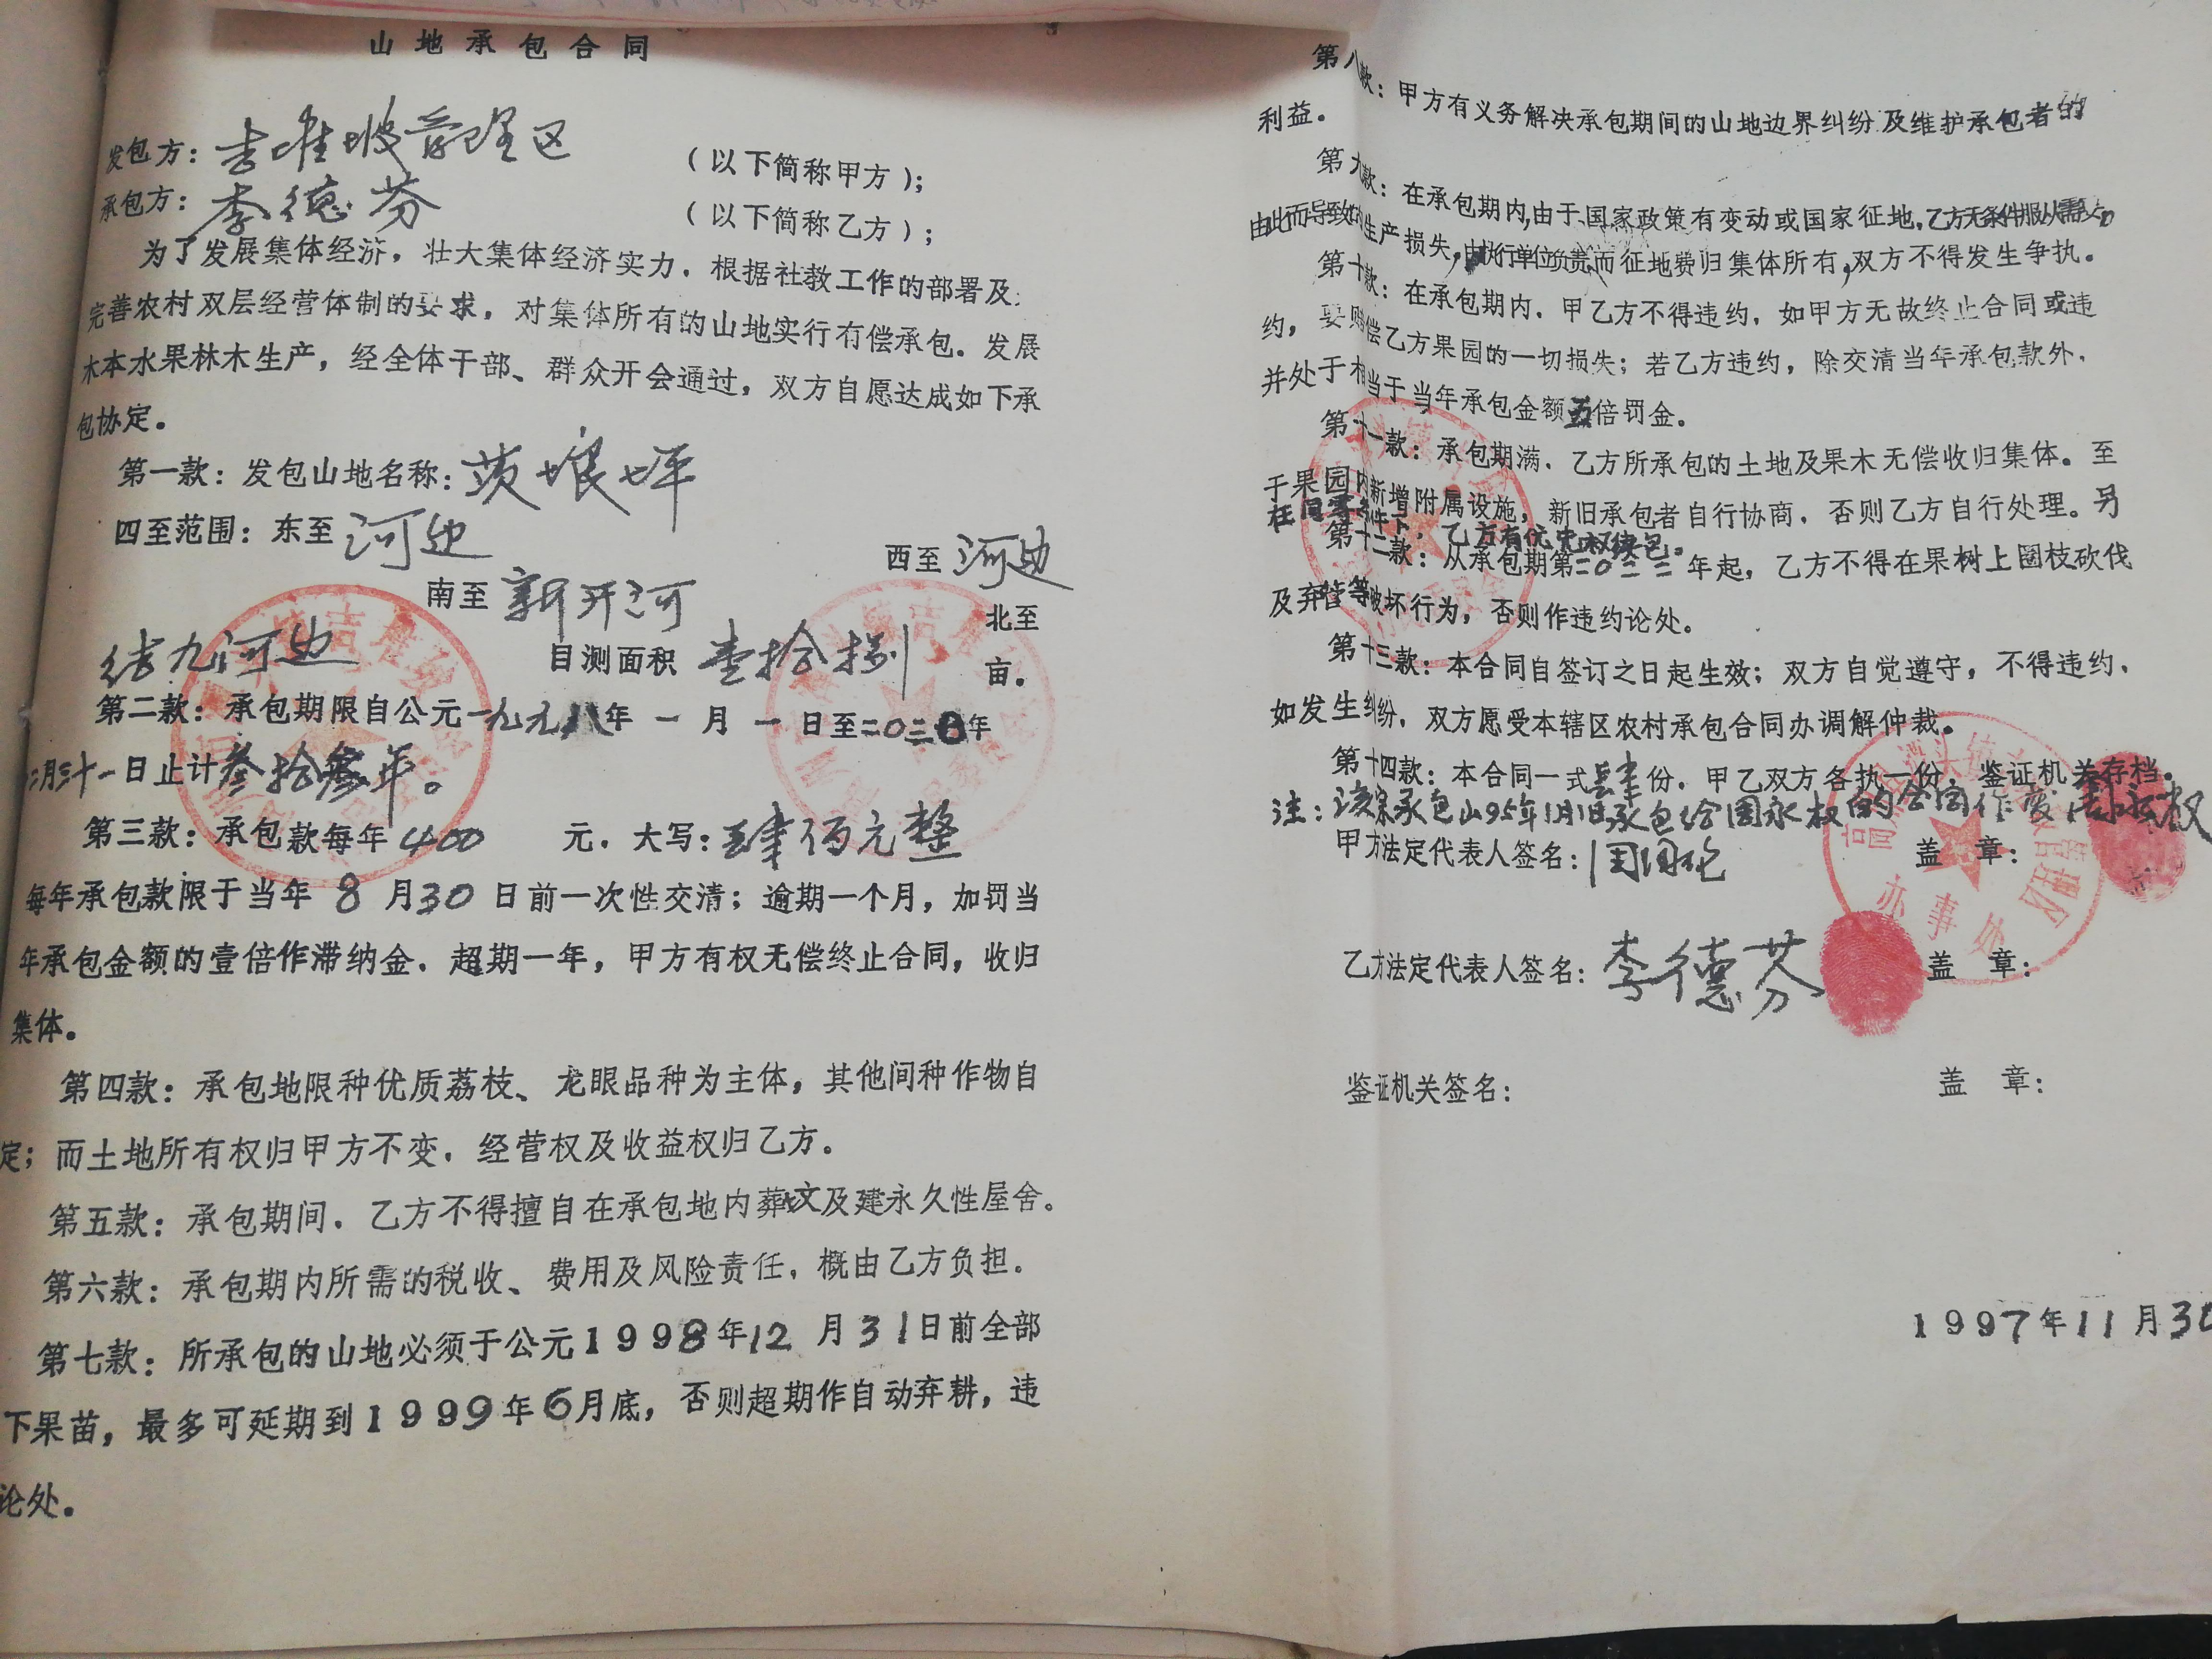 山地承包合同
发包方：吉堆坡管理区 （以下简称甲方）；
承包方：李德芬 （以下简称乙方）；
为了发展集体经济，壮大集体经济实力．根据社教工作的部署及
完善农村双层经营体制的要求，对集体所有的山地实行有偿承包。发展
木本水果林木生产，经全体干部、群众开会通过，双方自愿达成如下承
包协定。
第一款：发包山地名称：茨埌坪
四至范围：东至河边 西至河边
南至新开河 北至
河边 目测面积 壹拾捌 亩。
第二款：承包期限自公元一九九八年一月一日至二0三0年
月三十一日止计叁拾叁年。
第三款：承包款每年400元．大写：肆佰元整
每年承包款限于当年8月30日前一次性交清；逾期一个月，加罚当
年承包金额的壹倍作滞纳金．超期一年，甲方有权无偿终止合同，收归
集体。
第四款：承包地限种优质荔枝、龙眼品种为主体，其他间种作物自
定；而土地所有权归甲方不变．经营权及收益权归乙方。
第五款：承包期间．乙方不得擅自在承包地内葬坟及建永久性屋舍。
第六款：承包期内所需的税收、费用及风险责任，概由乙方负担．
第七款：所承包的山地必须于公元1998年12月31日前全部
下果苗，最多可延期到1999年6月底，否则超期作自动弃耕，违
论处。
第八款：甲方有义务解决承包期间的山地边界纠纷及维护承包者的
利益。
第九款：在承包期内,由于国家政策有变动或国家征地,乙方无条件服从需要,
由此而导致的生产损失,由执行单位负责,而征地费归集体所有,双方不得发生争执。
第十款：在承包期内．甲乙方不得违约，如甲方无故终止合同或违
约，要赔偿乙方果园的一切损失；若乙方违约，除交清当年承包款外．
并处于相当于当年承包金额五倍罚金。
第十一款：承包期满．乙方所承包的土地及果木无偿收归集体。至
于果园内新增附属设施，新旧承包者自行协商．否则乙方自行处理。另
在同等条件下，乙方有优先权续包。
第十二款：从承包期第二0二二年起，乙方不得在果树上圈枝砍伐
及弃管等破坏行为，否则作违约论处。
第十三款：本合同自签订之日起生效；双方自觉遵守，不得违约．
如发生纠纷．双方愿受本辖区农村承包合同办调解仲裁。
第十四款：本合同一式肆份．甲乙双方各执一份，鉴证机关存档。
注：该宗承包山95年1月1日承包给周永权的合同作废 周永权
甲方法定代表人签名： 盖 章：
办事处
乙方法定代表人签名：李德芬 盖 章：
鉴证机关签名： 盖 章：
1997年11月30